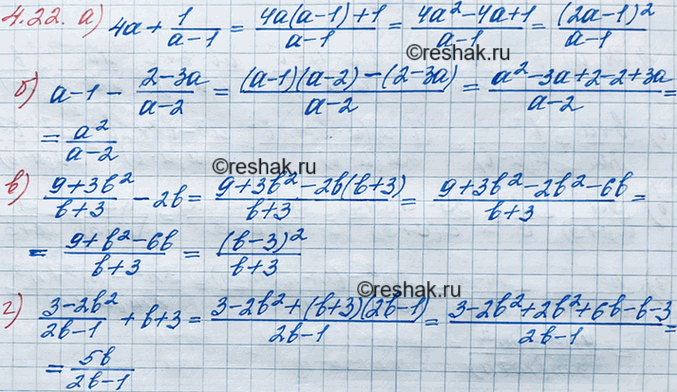 4.22. а) 4a + \frac{1}{a-1} = \frac{4a(a-1)+1}{a-1} = \frac{4a^2-4a+1}{a-1} = \frac{(2a-1)^2}{a-1}
©reshak.ru
б) a-1 - \frac{2-3a}{a-2} = \frac{(a-1)(a-2)-(2-3a)}{a-2} = \frac{a^2-3a+2-2+3a}{a-2} =
= \frac{a^2}{a-2}
©reshak.ru
в) \frac{9+3b^2}{b+3} - 2b = \frac{9+3b^2-2b(b+3)}{b+3} = \frac{9+3b^2-2b^2-6b}{b+3} =
= \frac{9+b^2-6b}{b+3} = \frac{(b-3)^2}{b+3}
©reshak.ru
г) \frac{3-2b^2}{2b-1} + b+3 = \frac{3-2b^2+(b+3)(2b-1)}{2b-1} = \frac{3-2b^2+2b^2+6b-b-3}{2b-1} =
= \frac{5b}{2b-1}
©reshak.ru